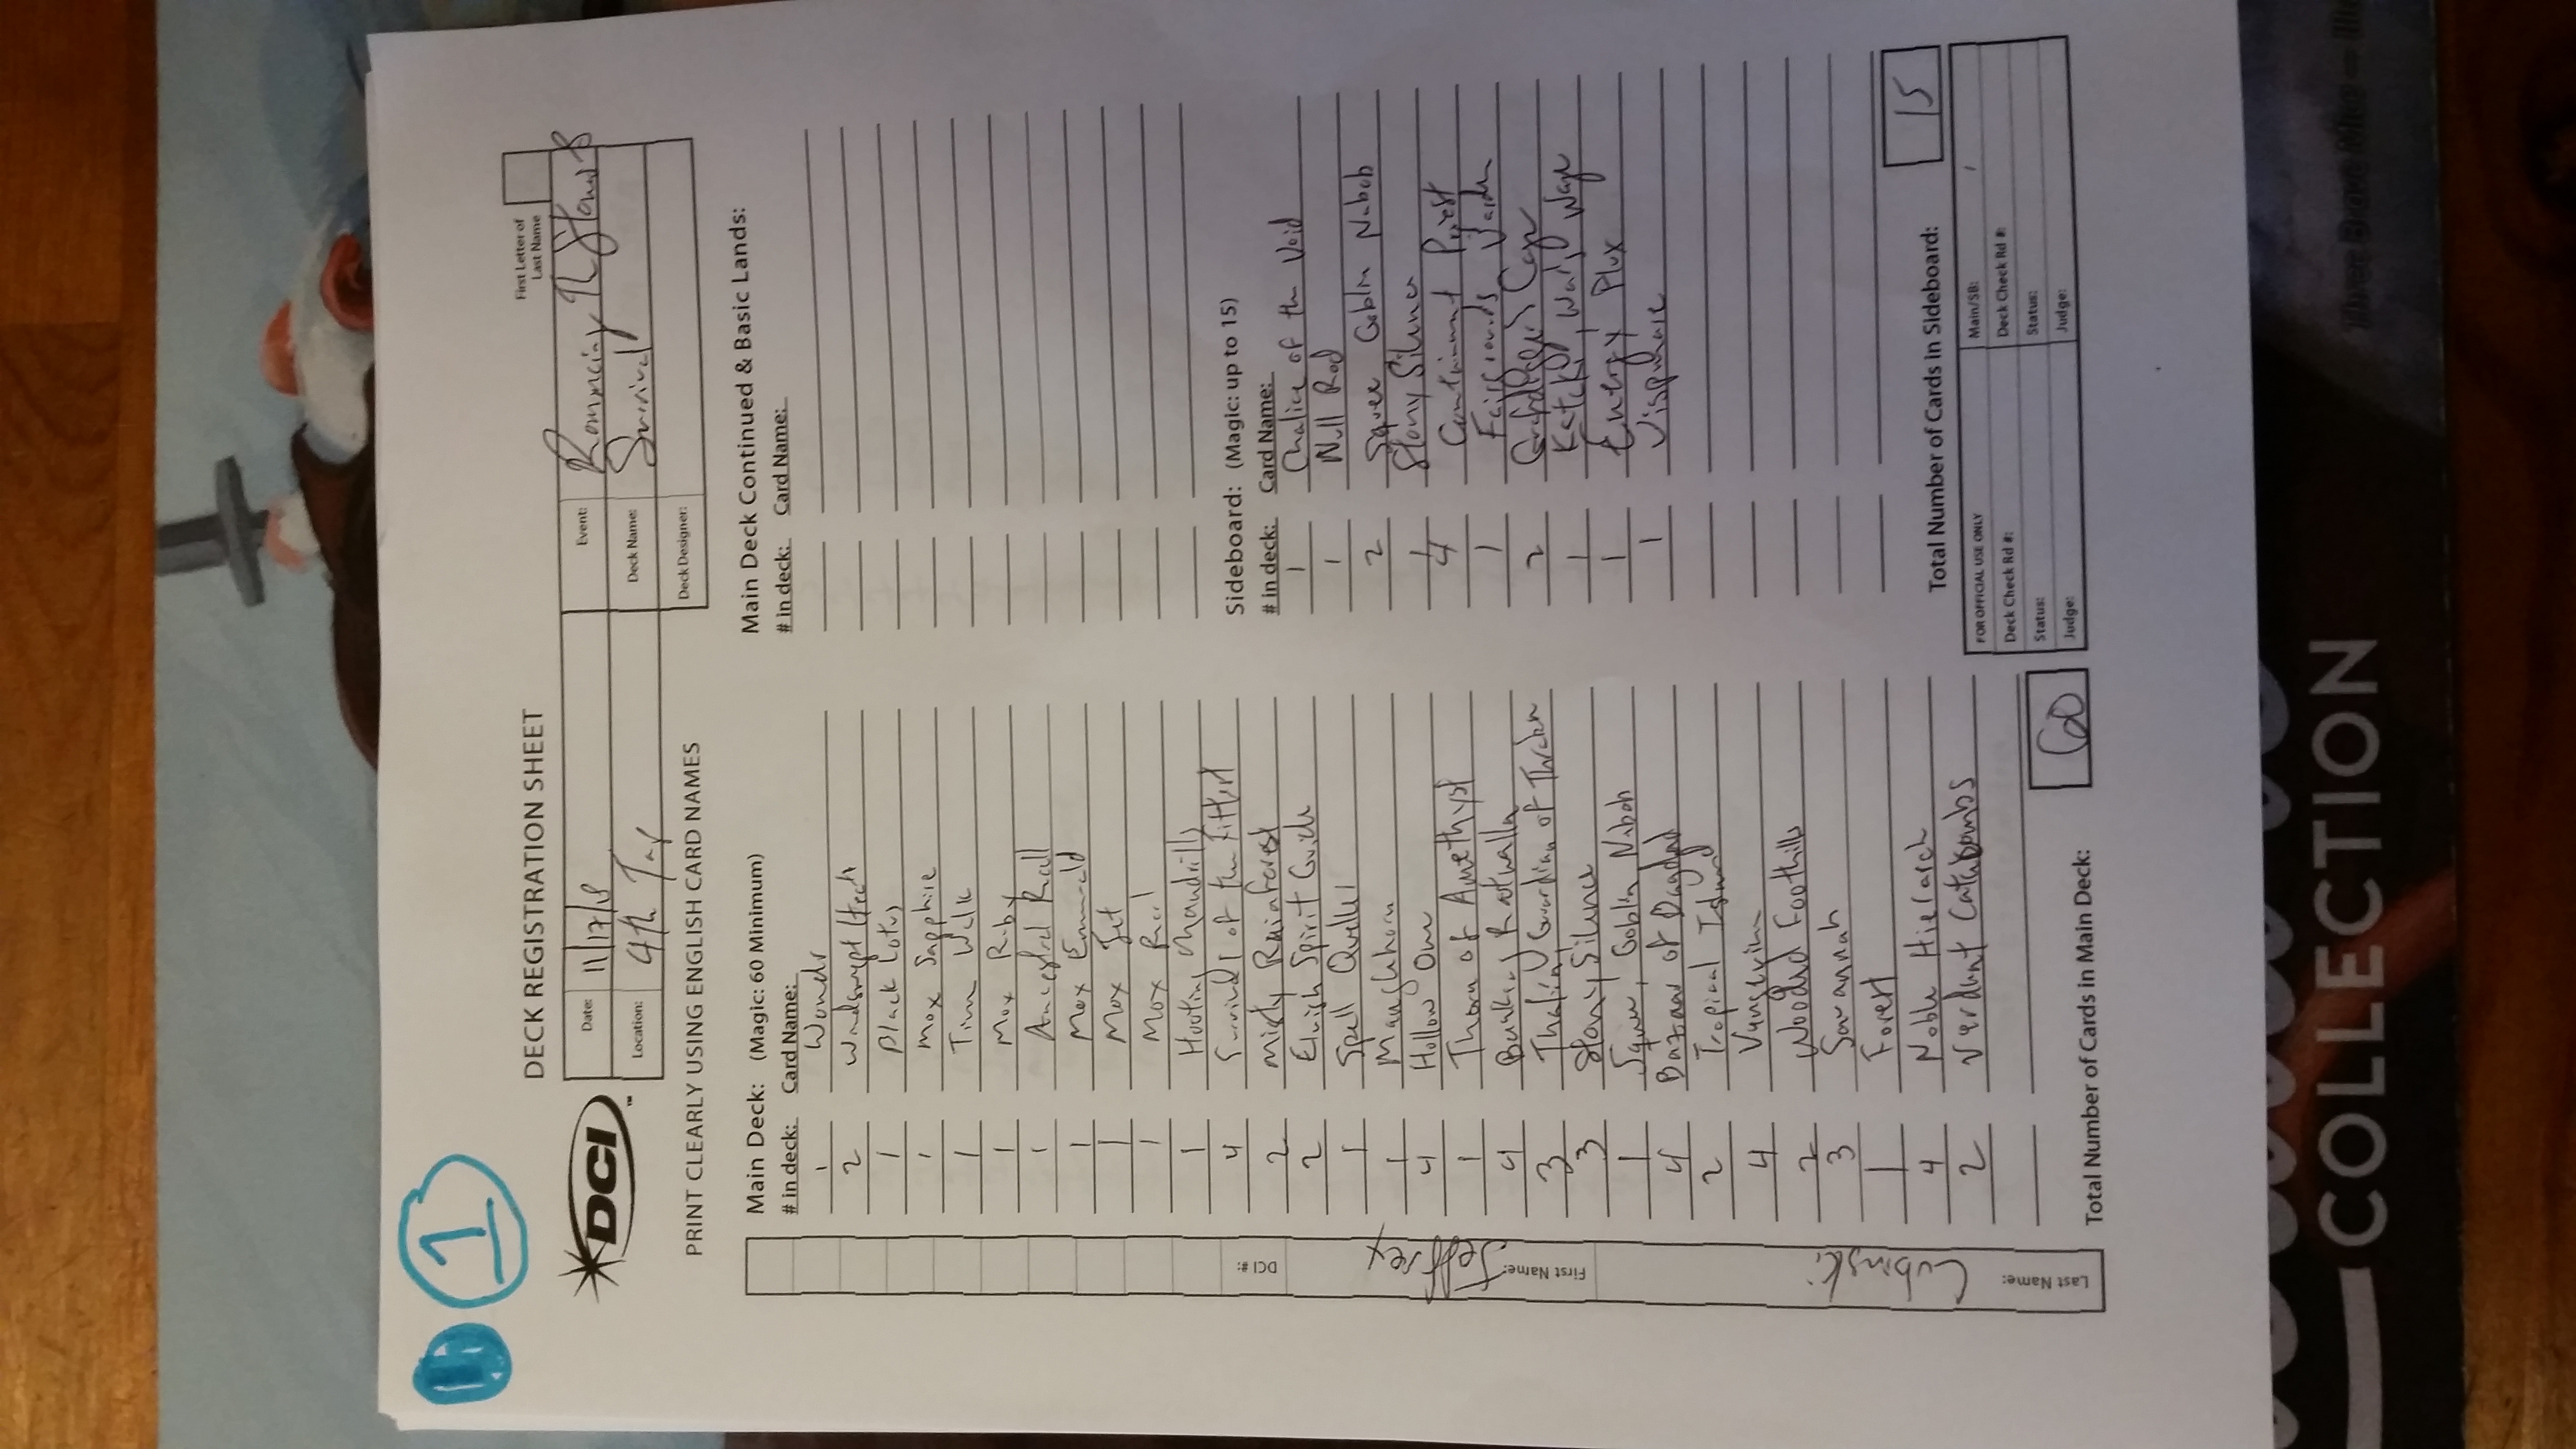 1
DECK REGISTRATION SHEET
First Letter of
Last Name
DCI
Date: 11/17/18
Event: Romancing
Location: 4th Tap
Deck Name: Survival
Deck Designer:
PRINT CLEARLY USING ENGLISH CARD NAMES
Main Deck: (Magic: 60 Minimum)
# in deck: Card Name:
1 Wondr
2 Windswept Heath
1 Black Lotus
1 Mox Sapphire
1 Time Walk
1 Mox Ruby
1 Ancestral Recall
1 Mox Emerald
1 Mox Jet
1 Mox Pearl
1 Hooting Mandrills
4 Survival of the Fittest
2 Misty Rainforest
2 Elvish Spirit Guide
1 Spell Queller
1 Manglehorn
4 Hollow One
1 Thorn of Amethyst
4 Basking Rootwalla
3 Thalia, Guardian of Thraben
3 Stony Silence
1 Squee, Goblin Nabob
4 Bazaar of Bagdad
2 Tropical Island
4 Vengevine
2 Wooded Foothills
3 Savannah
1 Forest
4 Noble Hierarch
2 Verdant Catacombs
Total Number of Cards in Main Deck: 60
Main Deck Continued & Basic Lands:
# in deck: Card Name:
Sideboard: (Magic: up to 15)
# in deck: Card Name:
1 Chalice of the Void
1 Null Rod
2 Squee Goblin Nabob
1 Stony Silence
4 Containment Priest
1 Fairgrounds Warden
2 Grafdigger's Cage
1 Kataki, War's Wage
1 Energy Flux
1
Total Number of Cards in Sideboard: 15
FOR OFFICIAL USE ONLY
Main/SB: /
Deck Check Rd #:
Deck Check Rd #:
Status:
Status:
Judge:
Judge:
Last Name: Cubinski
First Name: Jeffrey
DCI #:
COLLECTION
Three Brave Mice —